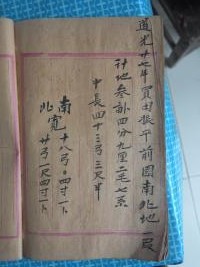 道光廿七年買田振平前園南北地一段
計地叁畝四分九厘二毛七系
中長四十三弓三尺半
南
北寬
十八弓〇四寸一卜
廿弓一尺四寸一卜